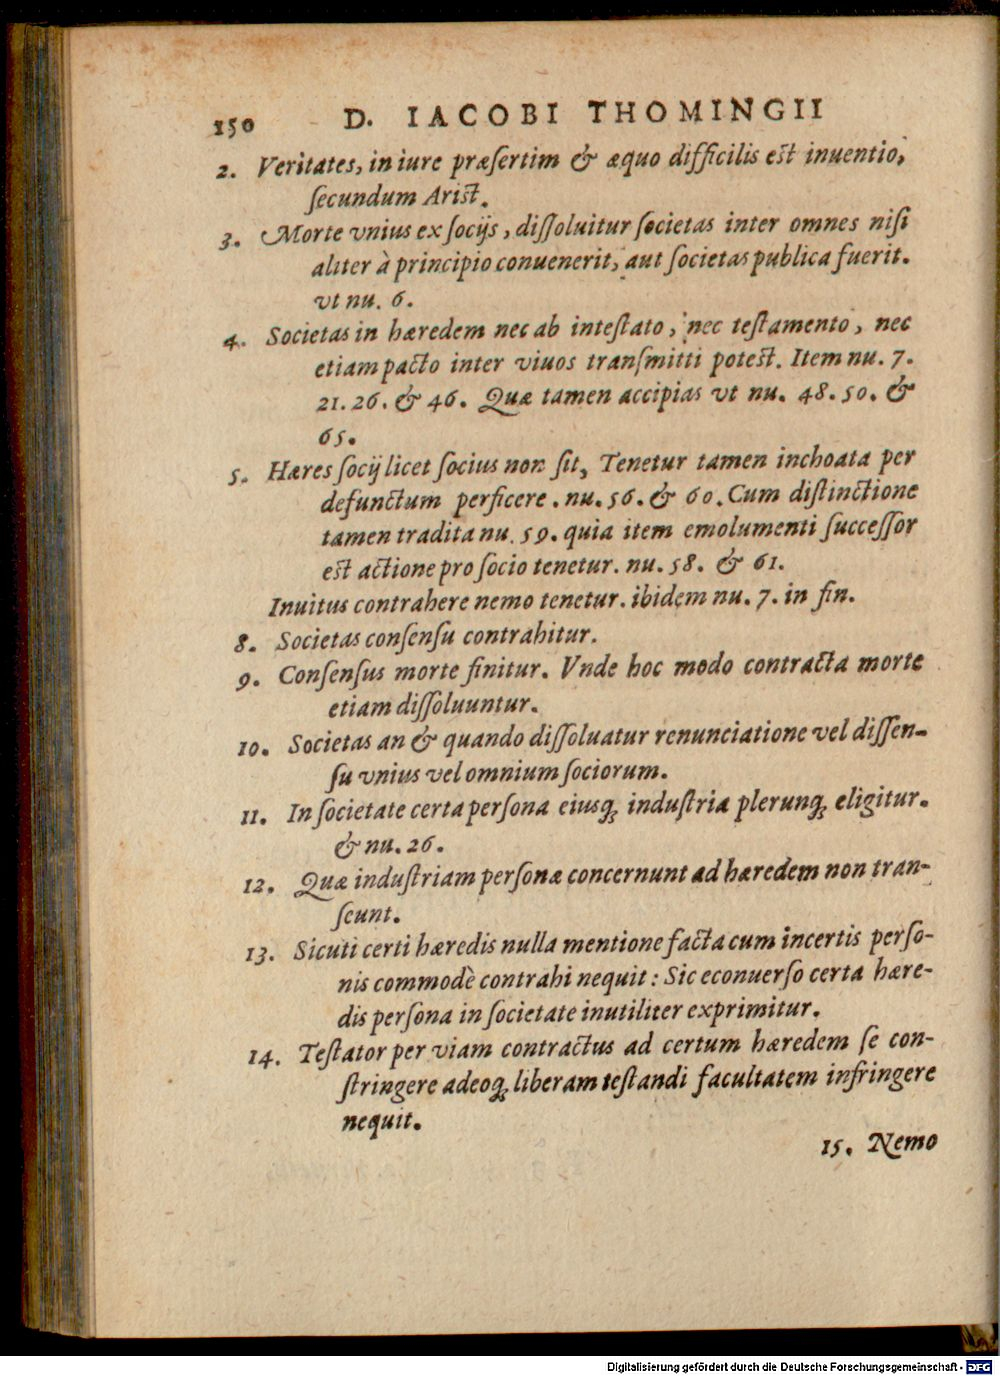 150 D. IACOBI THOMINGII
2. Veritates, in iure præſertim & æquo difficilis est inuentio,
ſecundum Arist.
3. Morte vnius ex ſocijs, diſſoluitur ſocietas inter omnes niſi
aliter à principio conuenerit, aut ſocietas publica fuerit.
vt nu. 6.
4. Societas in hæredem nec ab inteſtato, nec teſtamento, nec
etiam pacto inter viuos tranſmitti potest. Item nu. 7.
21. 26. & 46. Quæ tamen accipias vt nu. 48. 50. &
65.
5. Hæres ſocij licet ſocius non ſit, Tenetur tamen inchoata per
defunctum perficere. nu. 56. & 60. Cum diſtinctione
tamen tradita nu. 59. quia item emolumenti ſucceſſor
est actione pro ſocio tenetur. nu. 58. & 61.
Inuitus contrahere nemo tenetur. ibidem nu. 7. in fin.
8. Societas conſenſu contrahitur.
9. Conſenſus morte finitur. Vnde hoc modo contracta morte
etiam diſſoluuntur.
10. Societas an & quando diſſoluatur renunciatione vel diſſen-
ſu vnius vel omnium ſociorum.
11. In ſocietate certa perſona eiusq; induſtria plerunq; eligitur.
& nu. 26.
12. Quæ induſtriam perſonæ concernunt ad hæredem non tran-
ſeunt.
13. Sicuti certi hæredis nulla mentione facta cum incertis perſo-
nis commodè contrahi nequit: Sic econuerſo certa hære-
dis perſona in ſocietate inutiliter exprimitur.
14. Teſtator per viam contractus ad certum hæredem ſe con-
ſtringere adeoq; liberam teſtandi facultatem infringere
nequit.
15. Nemo
Digitalisierung gefördert durch die Deutsche Forschungsgemeinschaft - DFG